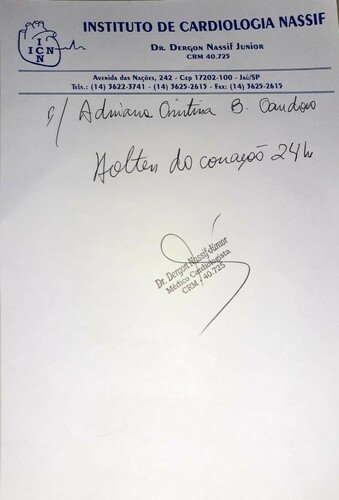 I
ICN
N
INSTITUTO DE CARDIOLOGIA NASSIF
DR. DERGON NASSIF JUNIOR
CRM 40.725
Avenida das Nações, 242 - Cep 17202-100 - Jaú/SP
Tels.: (14) 3622-3741 - (14) 3625-2615 - Fax: (14) 3625-2615
p/ Adriana Cristina B. Cardoso
Holter do coração 24h
Dr. Dergon Nassif Júnior
Médico Cardiologista
CRM / 40.725